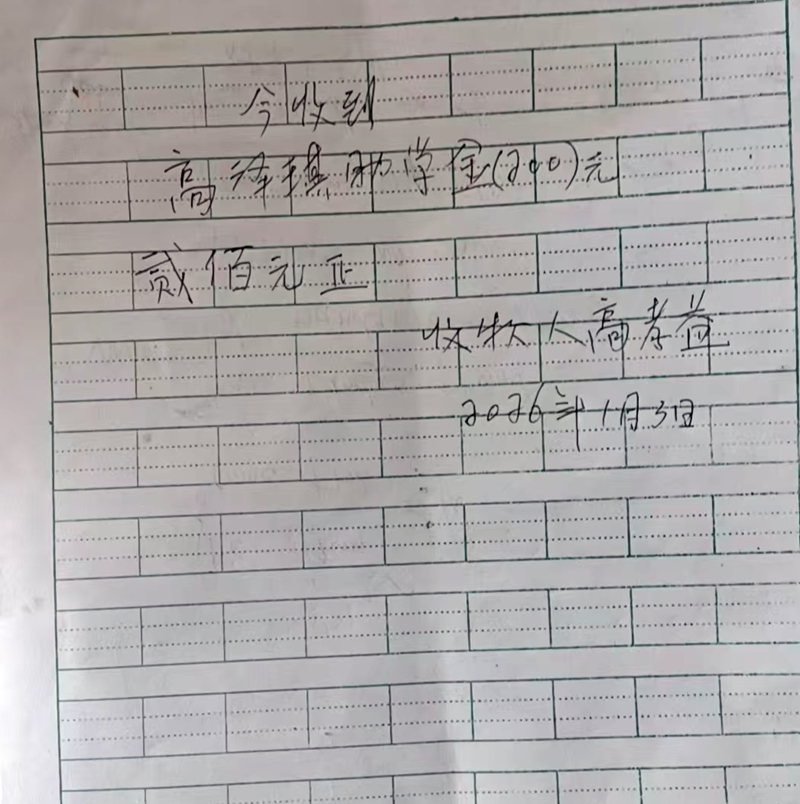 今收到
高泽琪助学金(200)元
贰佰元正
收牧人高孝益
2026年1月3日